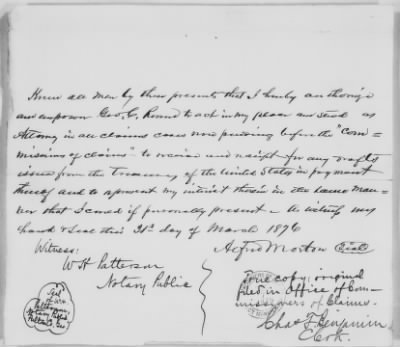 Know all men by these presents, that I hereby authorize
and empower Geo. C. Round to act in my place and stead as
Attorney in all claims cases now pending before the "Com=
missioners of claims" to receive and receipt for any drafts
issued from the Treasury of the United States in payment
thereof and to represent my interest therein in the same man=
ner that I could if personally present - As witness my
hand & Seal this 31st day of March 1876
Alfred Morton Seal
Witness:
W H Patterson
Notary Public
Seal of WH
Patterson,
Notary Public
True copy; original
filed in Office of Com=
missioners of Claims.
Chas F. Benjamin
Clerk.